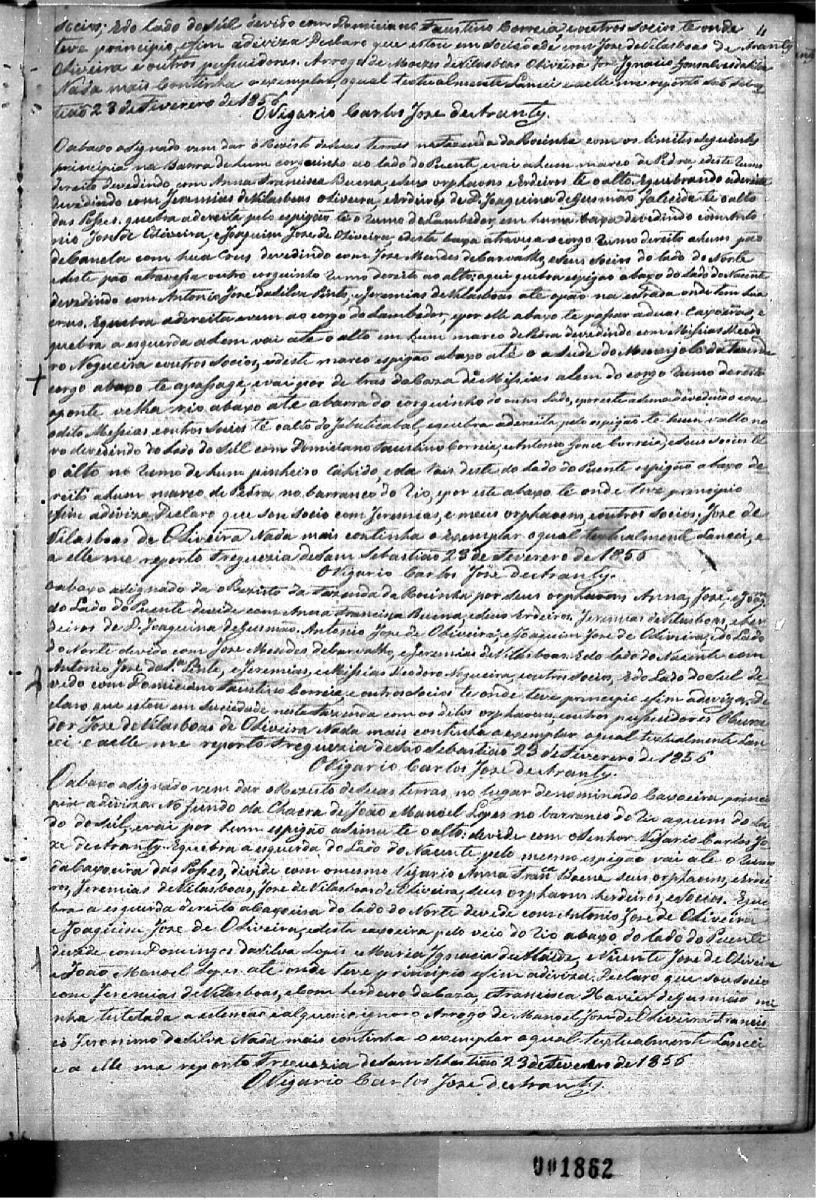 socios; E do lado do Sul devido com Domiciano Faustino Correia, e outros socios te onde
teve principio, e fim a diviza Declaro que estou em sociedade com Jose de Vilasboas de
Oliveira e outros pessuidores. Arrogo de Moizes de Vilasboas Oliveira Joze Ignacio Gonsalves
Nada mais Continha o exemplar, o qual textualmente Lancei e a elle me reporto
23 de Fevereiro de 1856
O Vigario Carlos Jose de
O abaxo asignado vem dar o Rezisto de suas terras na Fazenda da Rosinha com os limites seguintes
principia na Barra de hum corguinho ao lado do Puente, e vai a hum marco de Pedra, e deste Rumo
dereito devedindo com Anna Francisca Buena, e seus orphaons e Erdeiros te o alto. E quebrando a dereita
devedindo com Jeremias de Vilasboas Oliveira, e Erdeiros de D. Joaquina de Gusmão falecida te o alto
das Posses. quebra a dereita pelo espigão te o Rumo do Lambedor, em huma baxa devedindo com Anto
nio Jose de Oliveira, e Joaquim Jose de Oliveira, e desta baxa atravesa o corgo Rumo dereito a hum pao
de Canela com hua Crus, devedindo com Jose Mendes de Carvalho, e seus Socios do lado do Norte
e deste pao atravessa outro corguinho Rumo dereito ao alto; aqui quebra espigão abaxo do lado do Nacente
devedindo com Antonio Jose da Silva Pinto, e Jeremias de Vilasboas até o pão na estrada onde tem hua
crus, E quebra a dereita e vem ao corgo do Lambedor, e por elle abaxo te passar a duas Capoeiras, e
quebra a esquerda e alem vai até o alto em hum marco de Pedra devedindo com Missias
ro Nogueira e outros Socios, e deste marco espigão abaxo até o asude do Monjolo da Fazenda
corgo abaxo te a pasage, e vai por de tras da Caza de Missias alem do corgo Rumo dereito
a ponte velha rio abaxo até a barra do corguinho do outro lado, e por este asima devedindo com
o dito Messias e outros Socios té o alto do Jabuticabal, e quebra a dereita, pelo espigão te hum vallo no
vo devedindo do Lado do Sull com Domiciano Faustino Correia, e Antonio Jose Correia, e seus Socios té
o alto no Rumo de hum pinheiro cahido, e da vai deste do Lado do Puente espigão abaxo de
reito a hum marco de Pedra no barranco do Rio, e por este abaxo te onde teve principio
e fim a diviza Declaro que sou Socio com Jeremias, e meus orphaons, e outros Socios, Jose de
Vilasboas de Oliveira Nada mais continha o exemplar o qual textualmente Lancei, e
a elle me reporto Freguezia de Sam Sebastião 23 de Fevereiro de 1856
O Vigario Carlos Jose de
O abaxo asignado da o Rezisto da Fazenda da Rosinha por seus orphaons Anna, Jose, e
do Lado do Puente devide com Anna Francisca Buena, e seus Erdeiros, Jeremias de Vilasboas, e her
deiros de D. Joaquina de Gusmão. Antonio Jose de Oliveira, e Joaquim Jose de Oliveira, e do Lado
do Norte devido com Jose Mendes de Carvalho, e Jeremias de Vilasboas. E do lado do Nacente com
Antonio Jose da Sa. Pinto, e Jeremias, e Missias Nogueira, e outros Socios, E do Lado do Sul de
vedo com Domiciano Faustino Correia e outros Socios te onde teve principio e fim a deviza; De
claro que estou em Sociedade nesta Fazenda com os ditos orphaons, e outros pessuidores O Cura
dor Jose de Vilasboas de Oliveira Nada mais continha o exemplar o qual textualmente Lan
cei e a elle me reporto Freguezia de São Sebastião 23 de Fevereiro de 1856
O Vigario Carlos Jose de
O abaxo asignado vem dar o Rezisto de suas terras, no lugar denominado Capoeira princi
pia a diviza No fundo da Chacra de João Manoel Lopes no barranco do Rio aquem do La
do do Sul, e vai por hum espigão asima te o alto: devide com o Senhor Vigario Carlos Jo
ze de E quebra a esquerda do Lado do Nacente pelo mesmo espigão vai até o Rumo
da Capoeira das Posses, divide com o mesmo Vigario Anna Franca. Buena seus orphaons, e Erdei
ros, Jeremias de Vilasboas, Jose de Vilasboas de Oliveira, seus orphaons herdeiros, e Socios. E que
bra a esquerda dereito a Capoeira do lado do Norte devede com Antonio Jose de Oliveira
e Joaquim Jose de Oliveira, e desta capoeira pelo veio do Rio abaxo do lado do Puente
divide com Domingos da Silva Lopes e Maria Ignacia de Ataide, e Vicente Jose de Oliveira
e João Manoel Lopes até onde teve principio e fim a diviza. Declaro que sou Socio
com Jeremias de Vilasboas, e com herdeiro da Caza, e Francisca Xavier de Gusmão mi
nha tutelada a extenção e alqueires ignoro Arrogo de Manoel Jose de Oliveira Francis
co Jeronimo da Silva Nada mais continha o exemplar o qual textualmente Lancei
e a elle me reporto Freguezia de Sam Sebastião 23 de Fevereiro de 1856
O Vigario Carlos Jose de
001862